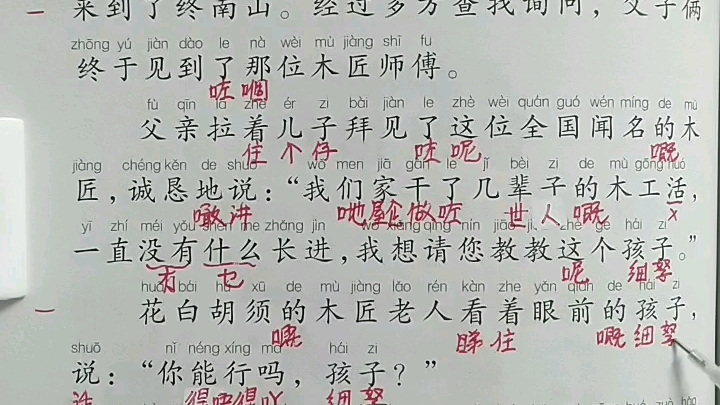 来到了终南山。经过多方查找询问，父子俩
zhōng yú jiàn dào le nà wèi mù jiàng shī fu
终于见到了那位木匠师傅。
咗嗰
fù qīn lā zhe ér zi bài jiàn le zhè wèi quán guó wén míng de mù
父亲拉着儿子拜见了这位全国闻名的木
住个仔 咗呢 嘅
jiàng chéng kěn de shuō wǒ men jiā gàn le jǐ bèi zi de mù gōng huó
匠，诚恳地说：“我们家干了几辈子的木工活，
噉讲 哋屋企做咗 世人嘅
yī zhí méi yǒu shén me zhǎng jìn wǒ xiǎng qǐng nín jiāo ji zhè ge hái zi
一直没有什么长进，我想请您教教这个孩子。”
冇 乜 呢 细孥
huā bái hú xū de mù jiàng lǎo rén kàn zhe yǎn qián de hái zi
花白胡须的木匠老人看着眼前的孩子，
嘅 睇住 嘅细孥
shuō nǐ néng xíng ma hái zi
说：“你能行吗，孩子？”
得唔得吖 细孥